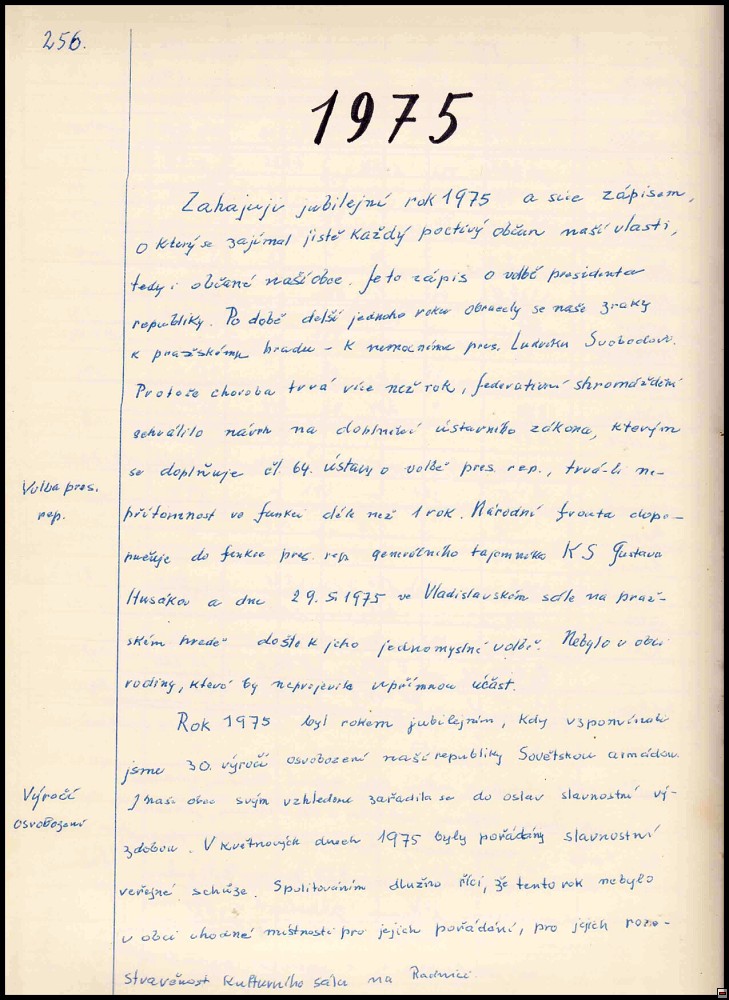 256.
1975
Zahajuji jubilejní rok 1975 a sice zápisem,
o který se zajímal jistě každý poctivý občan naší vlasti,
tedy i občané naší obce. Je to zápis o volbě presidenta
republiky. Po době delší jednoho roku obracely se naše zraky
k pražskému hradu – k nemocnému pres. Ludvíku Svobodovi.
Protože choroba trvá více než rok, federativní shromáždění
schválilo návrh na doplnění ústavního zákona, kterým
se doplňuje čl. 64. ústavy o volbě pres. rep., trvá-li ne-
Volba pres.
rep.
přítomnost ve funkci déle než 1 rok. Národní fronta dopo-
ručuje do funkce pres. rep. generálního tajemníka KS Gustava
Husáka a dne 29. 5. 1975 ve Vladislavském sále na praž-
ském hradě došlo k jeho jednomyslné volbě. Nebylo v obci
rodiny, která by neprojevila upřímnou účast.
Rok 1975 byl rokem jubilejním, kdy vzpomínali
jsme 30. výročí osvobození naší republiky Sovětskou armádou.
Výročí
osvobození
I naše obec svým vzhledem zařadila se do oslav slavnostní vý-
zdobou. V květnových dnech 1975 byly pořádány slavnostní
veřejné schůze. S politováním dlužno říci, že tento rok nebylo
v obci vhodné místnosti pro jejich pořádání, pro jejich roze-
stavěnost kulturního sálu na Radnici.